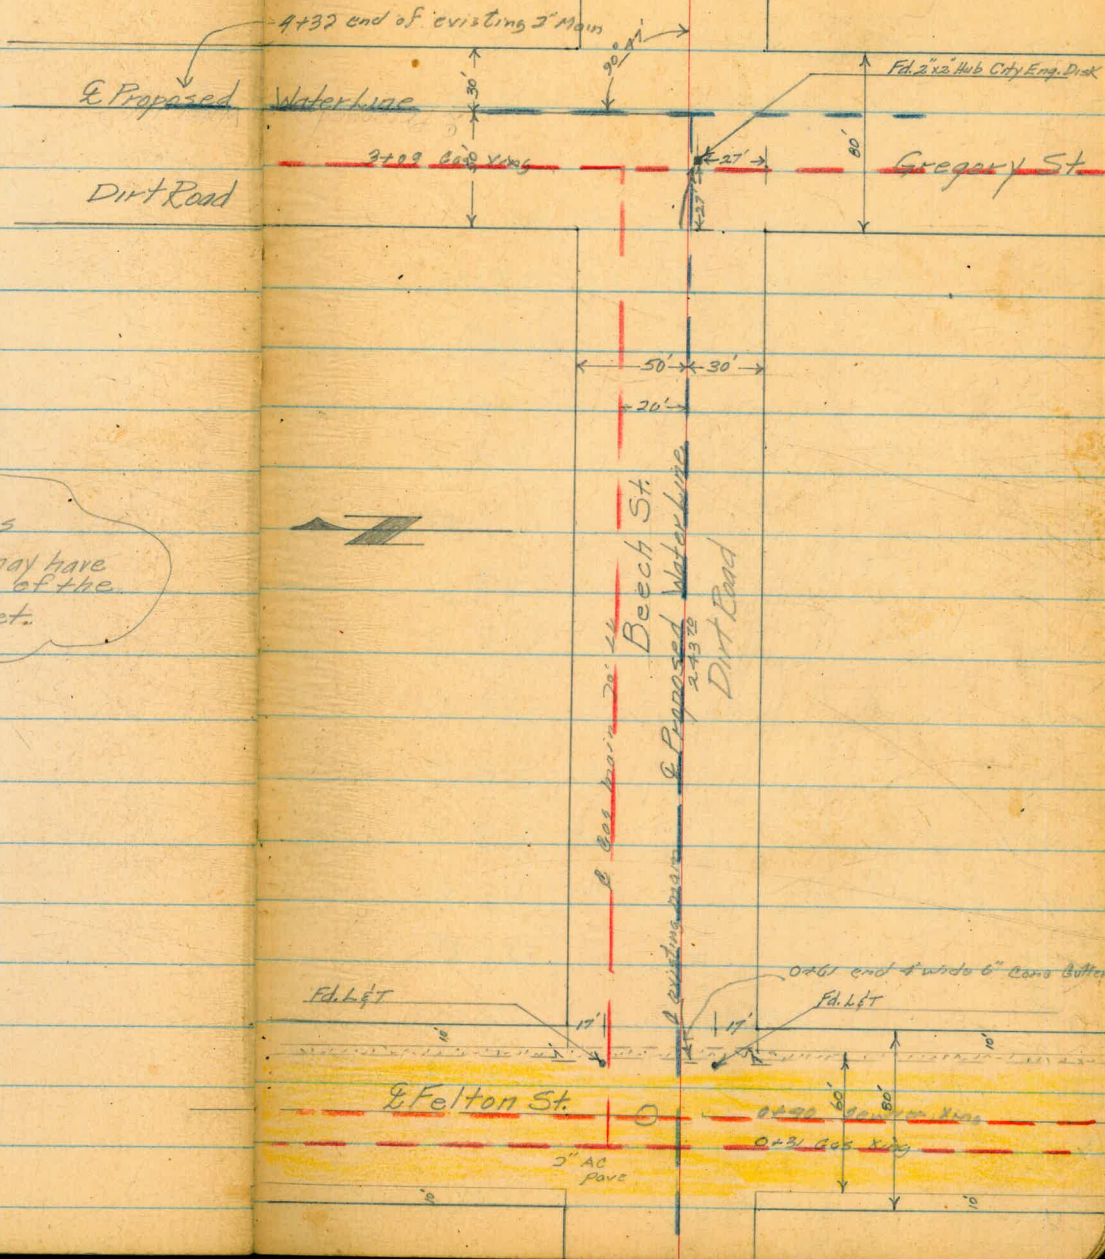 4+32 end of existing 2" Main
90° 41'
Fd. 2"x2" Hub City Eng. Disk
℄ Proposed Water Line
30'
80'
3+09 Gas Xing
50'
27'
Gregory St.
Dirt Road
27'
50'
30'
20'
may have
of the
Beech St.
℄ Proposed Water Line
243.70
Dirt Road
℄ Gas Main
℄ existing main
0+61 end 4' wide 6" Conc Gutter
Fd. L&T
Fd. L&T
17'
17'
10'
10'
7'
7'
℄ Felton St.
60'
80'
0+40 Xing
0+31 Gas Xing
2" AC
Pave
10'
10'